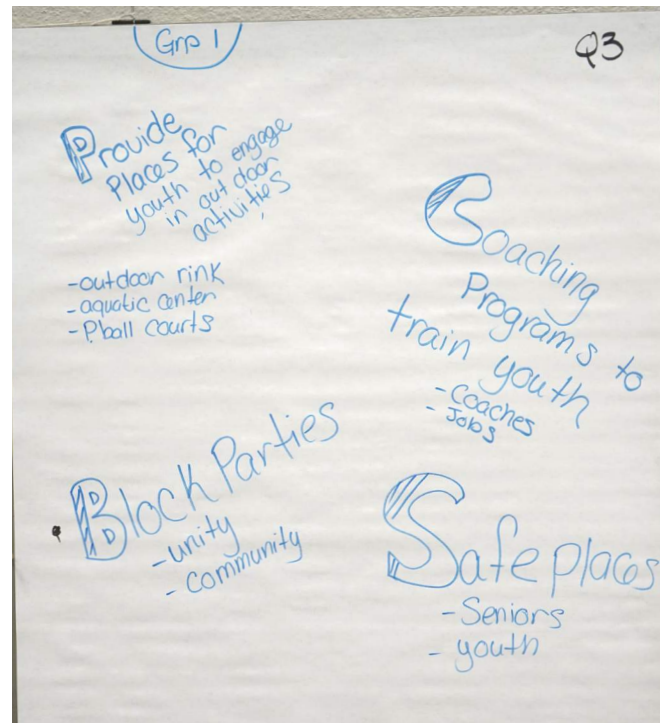 Grp 1
Q3
Provide
Places for
youth to engage
in outdoor
activities
-outdoor rink
-aquatic center
-Pball courts
Coaching
Programs to
train youth
-Coaches
-Jobs
Block Parties
-unity
-community
Safe places
-Seniors
-youth